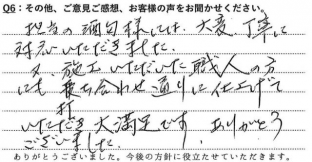 Q6：その他、ご意見ご感想、お客様の声をお聞かせください。
担当の 様には、大変、丁寧に
対応いただきました。
又、施工いただいた職人の方
にも、打ち合わせ通りに仕上げて
いただき大満足です。ありがとう
ございました。
ありがとうございました。今後の方針に役立たせていただきます。